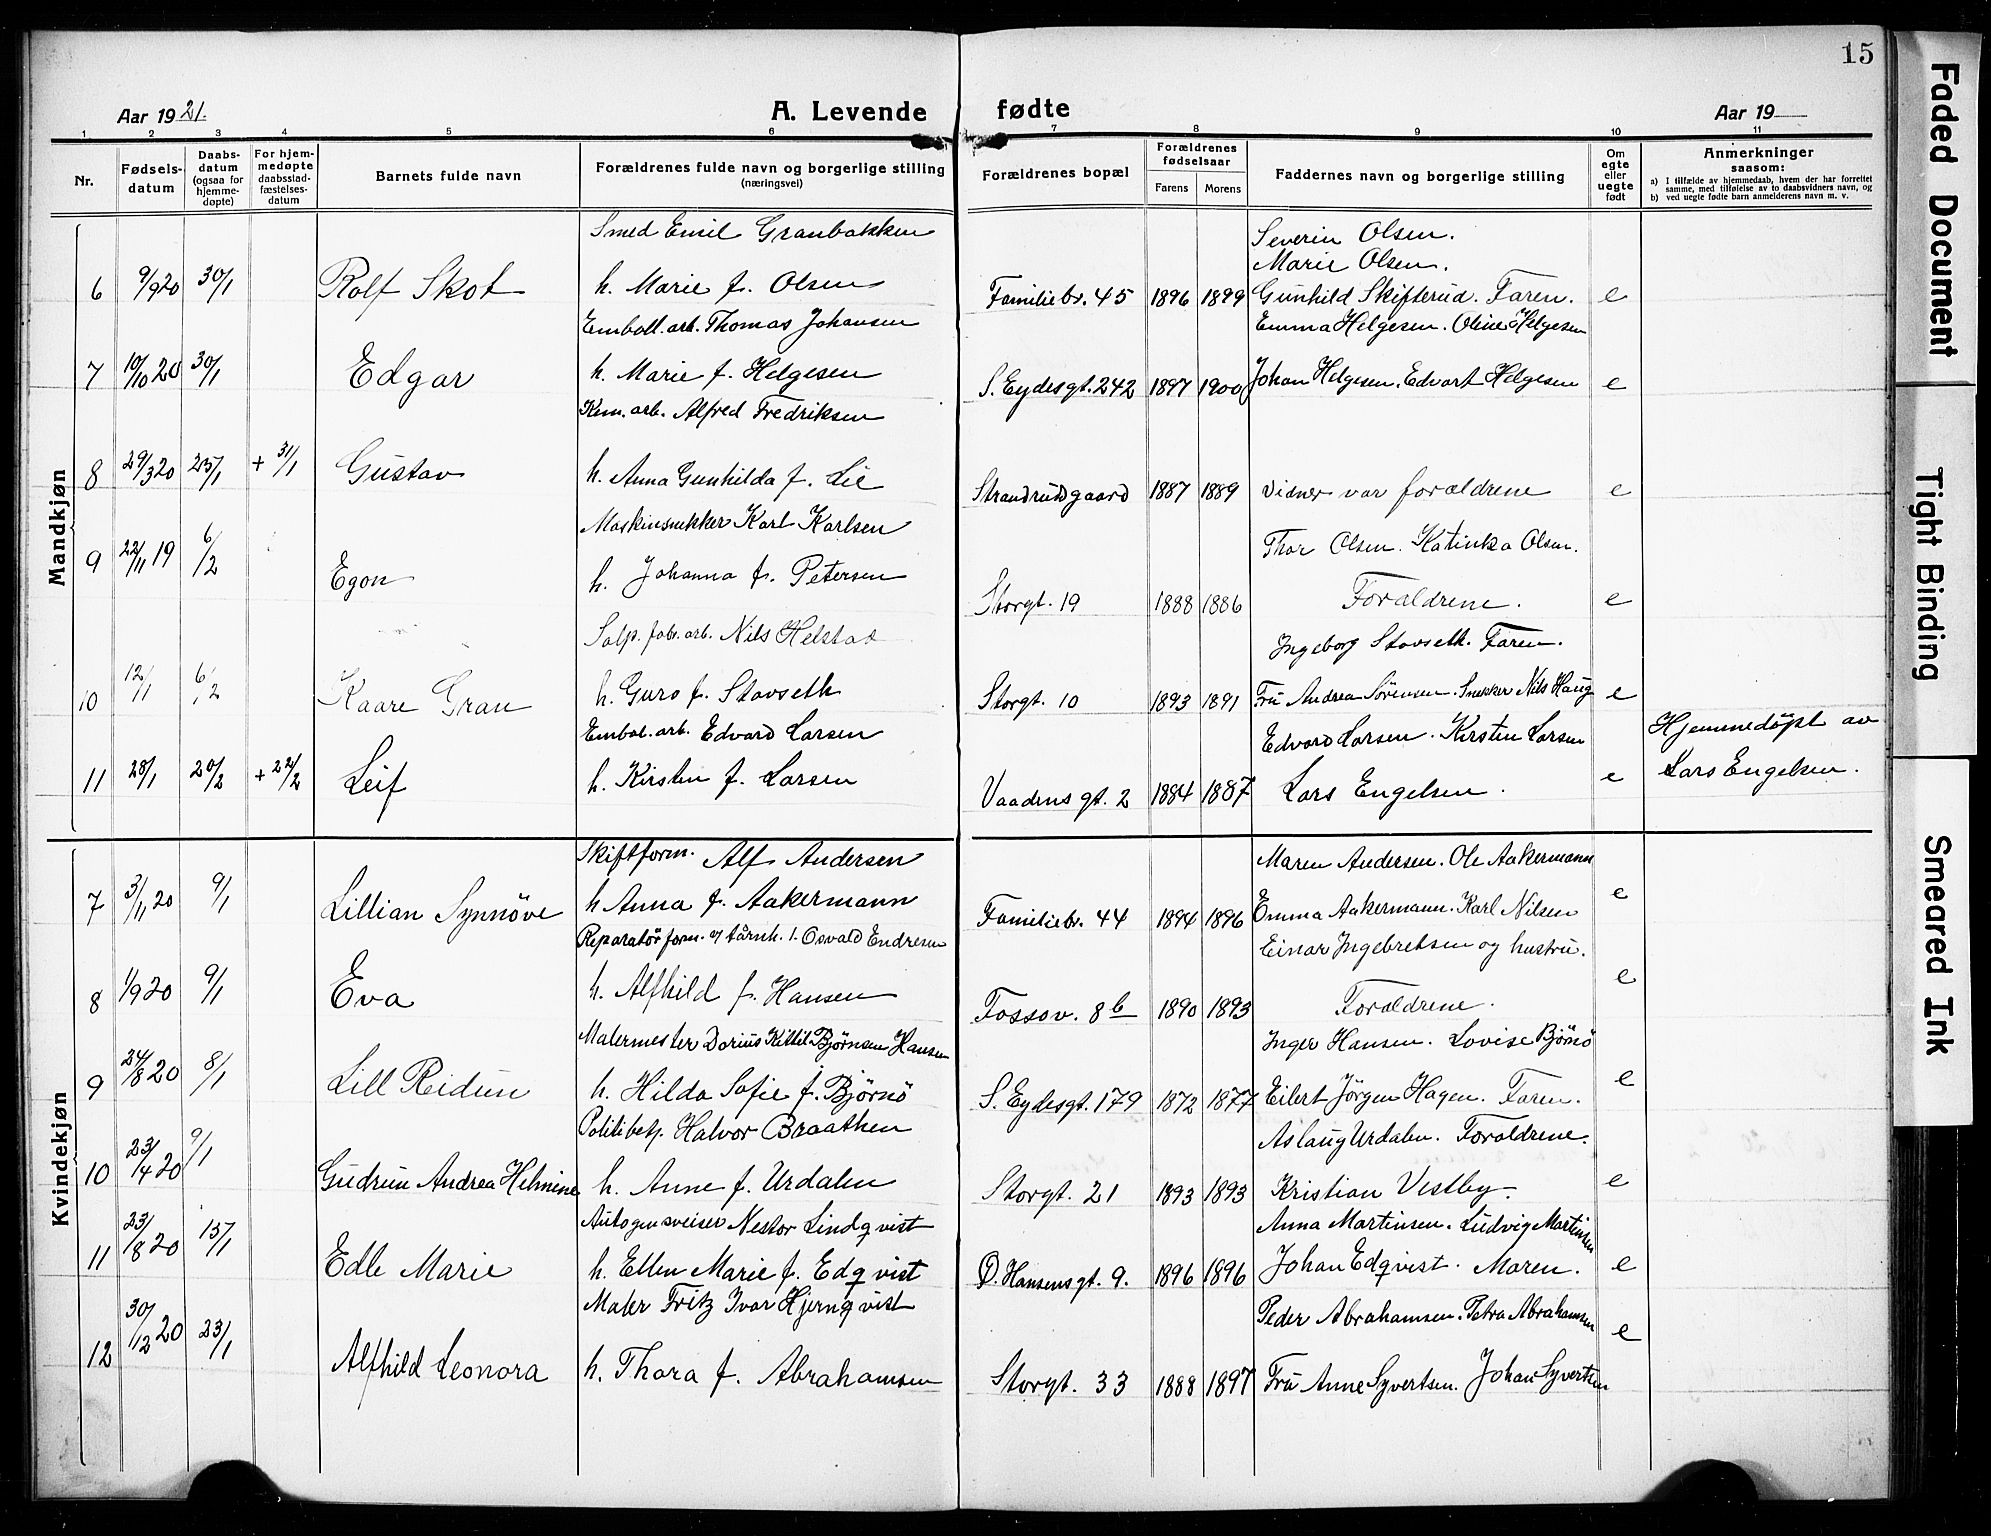 15
Aar 1921.
A. Levende fødte
Aar 19
1 2 3 4 5 6 7 8 9 10 11
Nr.
Fødsels-
datum
Daabs-
datum
(ogsaa for
hjemme-
døpte)
For hjem-
medøpte
daabsstad-
fæstelses-
datum
Barnets fulde navn
Forældrenes fulde navn og borgerlige stilling
(næringsvei)
Forældrenes bopæl
Forældrenes
fødselsaar
Farens Morens
Faddernes navn og borgerlige stilling
Om
egte
eller
uegte
født
Anmerkninger
saasom:
a) I tilfælde av hjemmedaab, hvem der har forrettet
samme, med tilføielse av to daabsvidners navn, og
b) ved uegte fødte barn anmelderens navn m. v.
Mandkjøn
Smed Emil Granbakken Severin Olsen.
Marie Olsen.
6 9/9 20 30/1 Rolf Skot h. Marie f. Olsen Familiebr. 45 1896 1899 Gunhild Skifterud. Faren. e
Emball. arb. Thomas Johansen Emma Helgesen. Oline Helgesen
7 10/10 20 30/1 Edgar h. Marie f. Helgesen S. Eydesgt. 242 1897 1900 Johan Helgesen. Edvart Helgesen e
Kem. arb. Alfred Fredriksen
8 29/3 20 25/1 + 31/1 Gustav h. Anna Gunhilda f. Lie Strandrudgaard 1887 1889 Vidner var forældrene e
Maskinsnekker Karl Karlsen Thor Olsen. Katinka Olsen.
9 22/11 19 6/2 Egon h. Johanna f. Petersen Storgt. 19 1888 1886 Forældrene. e
Salp. fab. arb. Nils Helstad Ingeborg Stavseth. Faren.
10 12/1 6/2 Kaare Gran h. Guro f. Stavseth Storgt. 10 1893 1891 Fru Andrea Sørensen. Snekker Nils Haug e
Embal. arb. Edvard Larsen Edvard Larsen. Kirsten Larsen Hjemmedøpt av
11 28/1 20/2 + 22/2 Leif h. Kirsten f. Larsen Vaadens gt. 2 1884 1887 Lars Engelsen. e Lars Engelsen.
Kvindekjøn
Skiftform. Alf Andersen Maren Andersen. Ole Aakermann
7 3/11 20 9/1 Lillian Synnöve h Anna f. Aakermann Familiebr. 44 1894 1896 Emma Aakermann. Karl Nilsen e
Reparatör form. v/ tårnh. 1. Osvald Endresen Einar Ingebretsen og hustru.
8 1/9 20 9/1 Eva h. Alfhild f. Hansen Fossov. 8b 1890 1893 Forældrene. e
Malermester Darius Kittil Bjørnsen Hansen Inger Hansen. Lovise Bjørnö
9 24/8 20 8/1 Lill Reidun h. Hilda Sofie f. Bjørnö S. Eydesgt. 179 1872 1877 Eilert Jörgen Hagen. Faren. e
Politibetj. Halvor Braathen Aslaug Urdalen. Forældrene.
10 23/4 20 9/1 Gudrun Andrea Helmine h. Anne f. Urdalen Storgt. 21 1893 1893 Kristian Vestby. e
Autogensveiser Nestor Lindqvist Anna Martinsen. Ludvig Martinsen
11 23/8 20 15/1 Edle Marie h. Ellen Marie f. Edqvist O. Hansens gt. 9. 1896 1896 Johan Edqvist. Moren. e
Maler Fritz Ivar Hjernqvist Peder Abrahamsen. Petra Abrahamsen
12 30/12 20 23/1 Alfhild Leonora h. Thora f. Abrahamsen Storgt. 33 1888 1897 Fru Anne Syvertsen. Johan Syvertsen e
Faded Document
Tight Binding
Smeared Ink